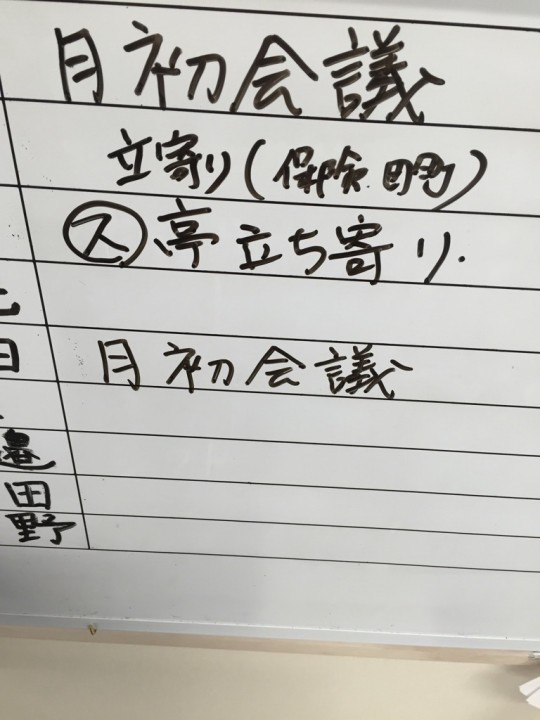 月初会議
立寄り(保険 町)
ス 亭立ち寄り.
日 月初会議
邉
田
野